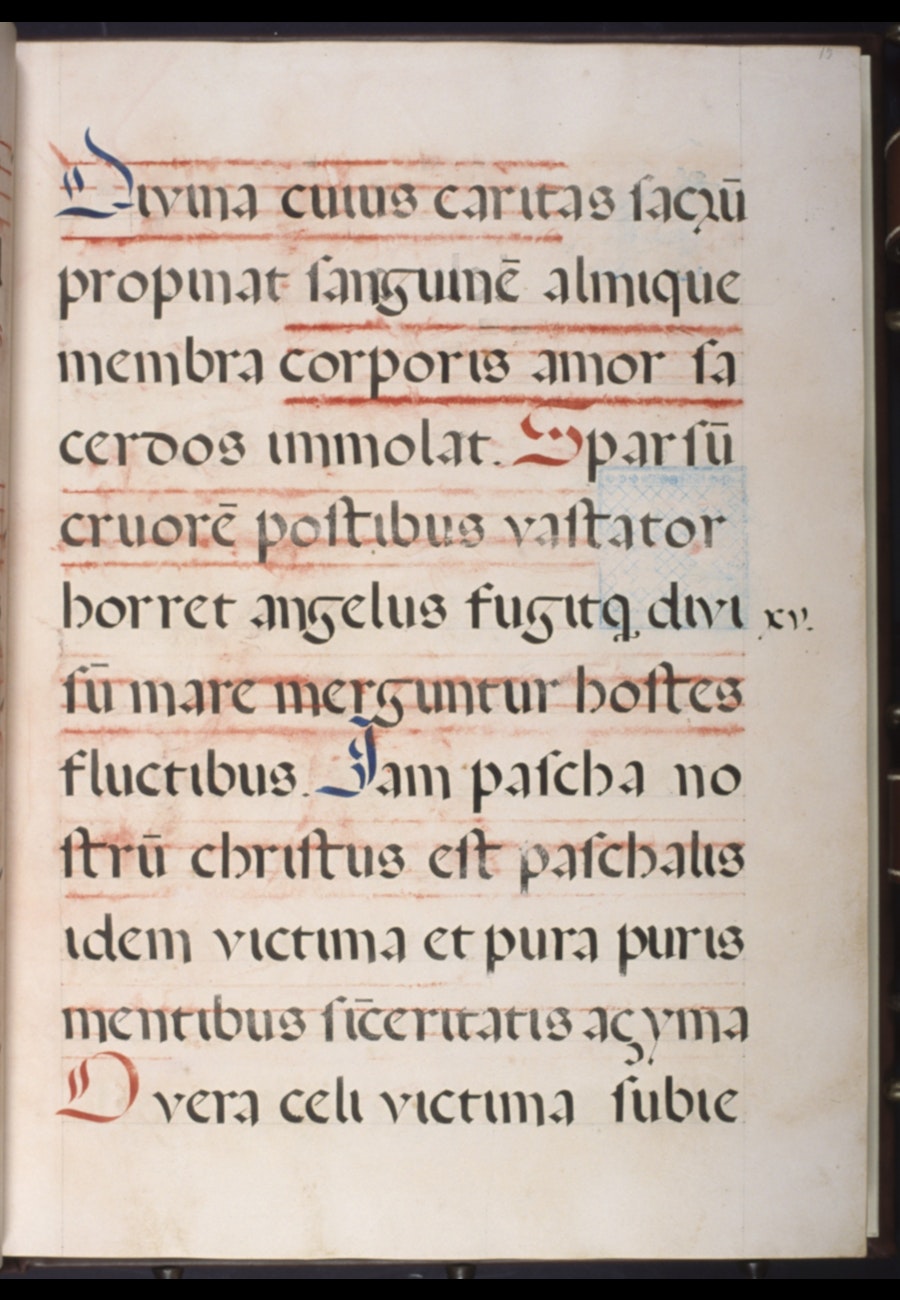 13
Divina cuius caritas ſacꝝū
propinat ſanguinē almique
membra corporis amor ſa
cerdos immolat. Sparſū
cruorē poſtibus vaſtator
horret angelus fugitꝗ divi xv.
ſū mare merguntur hoſtes
fluctibus. Jam paſcha no
ſtrū chriſtus eſt paſchalis
idem victima et pura puris
mentibus ſīceritatis açyma
O vera celi victima ſubie